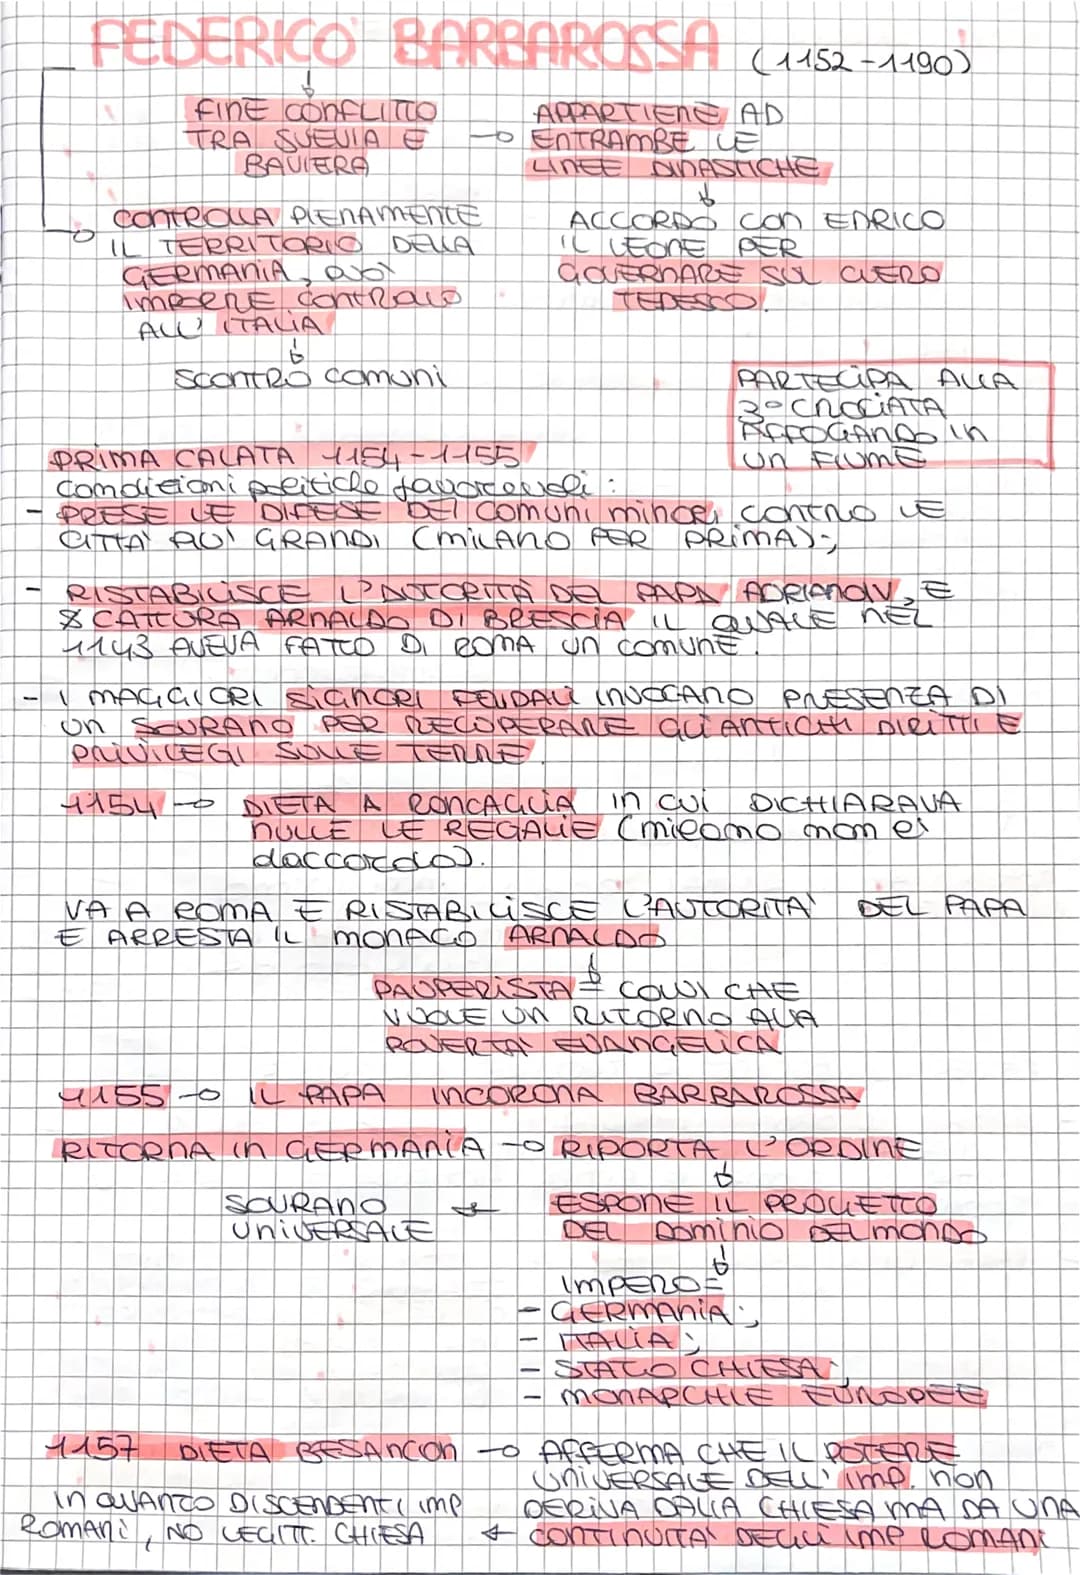 FEDERICO BARBAROSSA (1152-1190)
FINE CONFLITTO
TRA SVEVIA E
BAVIERA
APPARTIENE AD
ENTRAMBE LE
LINEE DINASTICHE
CONTROLLA PIENAMENTE
IL TERRITORIO DELLA
GERMANIA, può
IMPORRE CONTROLLO
ALL'ITALIA
ACCORDO CON ENRICO
IL LEONE PER
GOVERNARE SUL CLERO
TEDESCO.
SCONTRO COMUNI
PARTECIPA ALLA
3° CROCIATA
AFFOGANDO IN
UN FIUME
PRIMA CALATA 1154-1155
Condizioni politiche favorevoli:
- PRESE LE DIFESE DEI COMUNI MINORI CONTRO LE
CITTA' PIU' GRANDI (MILANO PER PRIMA);
- RISTABILISCE L'AUTORITÀ DEL PAPA ADRIANO IV, E
CATTURA ARNALDO DI BRESCIA IL QUALE NEL
1143 AVEVA FATTO DI ROMA UN COMUNE.
- I MAGGIORI SIGNORI FEUDALI INVOCANO PRESENZA DI
UN SOVRANO PER RECUPERARE GLI ANTICHI DIRITTI E
PRIVILEGI SULLE TERRE.
1154 → DIETA A RONCAGLIA IN CUI DICHIARAVA
NULLE LE REGALIE (milano non è
daccordo).
VA A ROMA E RISTABILISCE L'AUTORITA' DEL PAPA
E ARRESTA IL MONACO ARNALDO
PAUPERISTA = COLUI CHE
VUOLE UN RITORNO ALLA
POVERTA' EVANGELICA
1155 → IL PAPA INCORONA BARBAROSSA
RITORNA IN GERMANIA → RIPORTA L'ORDINE
SOVRANO
UNIVERSALE
← ESPONE IL PROGETTO
DEL DOMINIO DEL MONDO
IMPERO=
- GERMANIA;
- ITALIA;
- STATO CHIESA;
- MONARCHIE EUROPEE
1157 DIETA BESANCON → AFFERMA CHE IL POTERE
UNIVERSALE DELL' IMP. NON
DERIVA DALLA CHIESA MA DA UNA
← CONTINUITA' DEGLI IMP ROMANI
IN QUANTO DISCENDENTI IMP
ROMANI, NO LEGITT. CHIESA